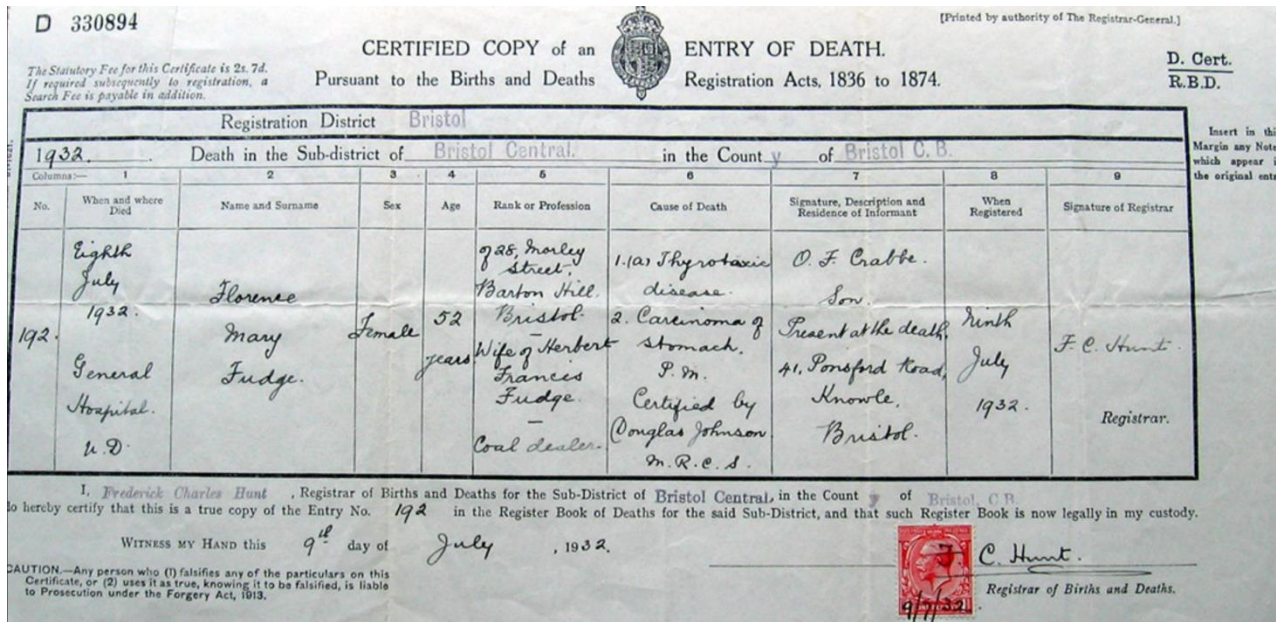 D 330894
[Printed by authority of The Registrar-General.]
CERTIFIED COPY of an ENTRY OF DEATH.
The Statutory Fee for this Certificate is 2s. 7d.
If required subsequently to registration, a
Search Fee is payable in addition.
Pursuant to the Births and Deaths Registration Acts, 1836 to 1874.
D. Cert.
R.B.D.
Registration District Bristol
1932. Death in the Sub-district of Bristol Central. in the County of Bristol C.B.
Insert in this
Margin any Note
which appear i
the original entr
Columns:— 1 2 3 4 5 6 7 8 9
No.
When and where
Died
Name and Surname
Sex
Age
Rank or Profession
Cause of Death
Signature, Description and
Residence of Informant
When
Registered
Signature of Registrar
192.
Eighth
July
1932.
General
Hospital.
U.D.
Florence
Mary
Fudge.
Female
52
years
of 28, Morley
Street,
Barton Hill.
Bristol.
—
Wife of Herbert
Francis
Fudge.
—
Coal dealer.
1.(a) Thyrotoxic
disease.
2. Carcinoma of
stomach.
P.M.
Certified by
Douglas Johnson
M.R.C.S.
O. F. Crabbe.
Son.
Present at the death,
41, Ponsford Road,
Knowle,
Bristol.
Ninth
July
1932.
F. C. Hunt
Registrar.
I, Frederick Charles Hunt, Registrar of Births and Deaths for the Sub-District of Bristol Central, in the County of Bristol, C.B.
do hereby certify that this is a true copy of the Entry No. 192 in the Register Book of Deaths for the said Sub-District, and that such Register Book is now legally in my custody.
WITNESS MY HAND this 9th day of July, 1932.
F. C. Hunt.
Registrar of Births and Deaths.
CAUTION.—Any person who (1) falsifies any of the particulars on this
Certificate, or (2) uses it as true, knowing it to be falsified, is liable
to Prosecution under the Forgery Act, 1913.
9/7/32.